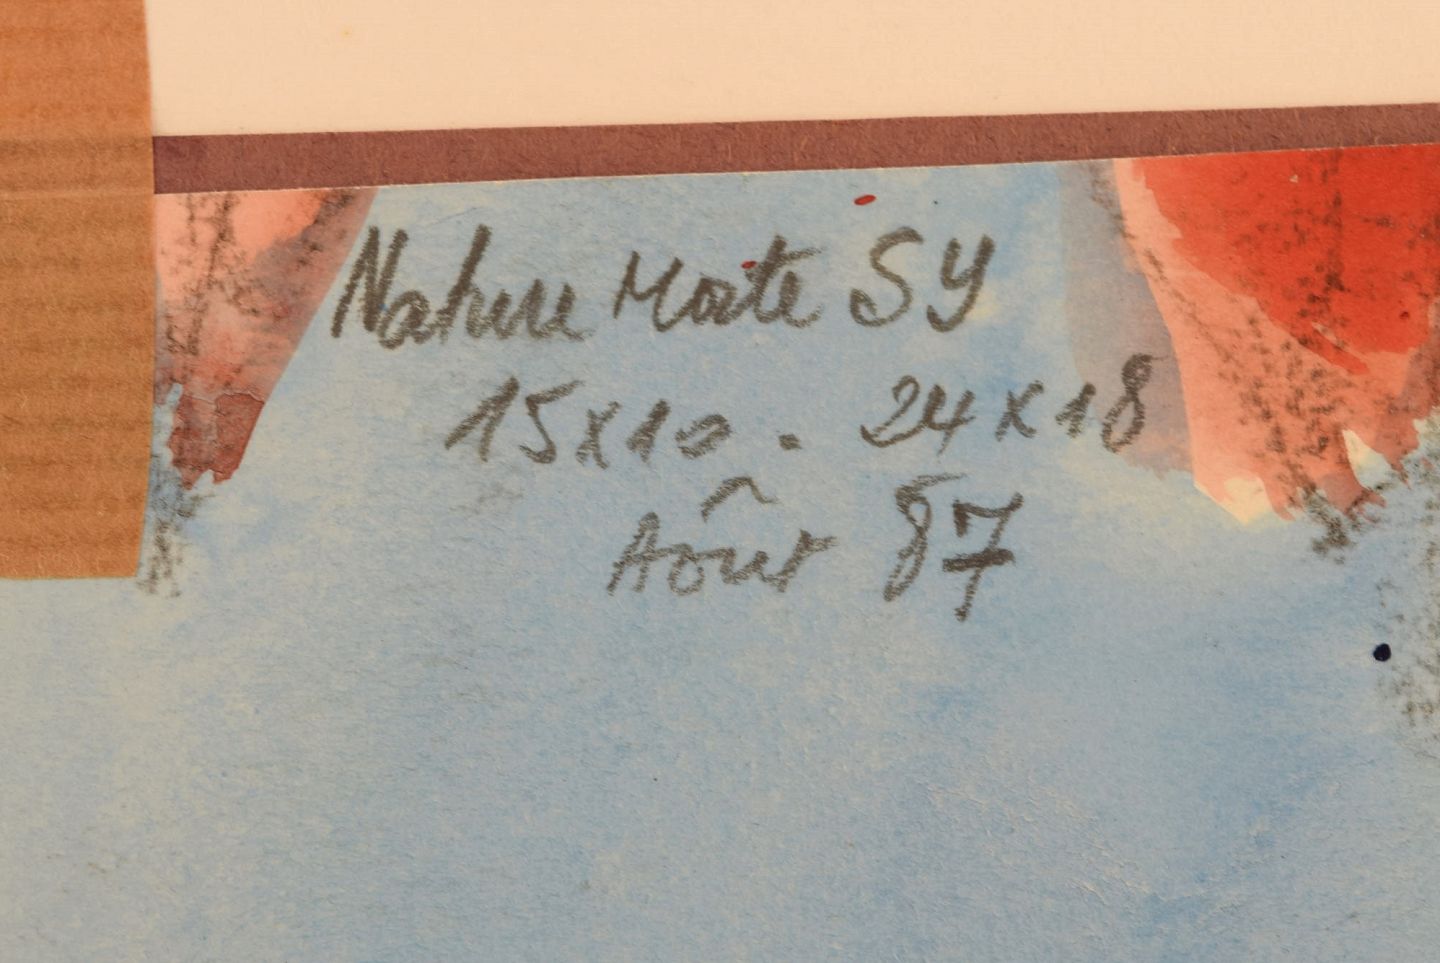 Nature Morte SY
15x10 . 24x18
Août 87